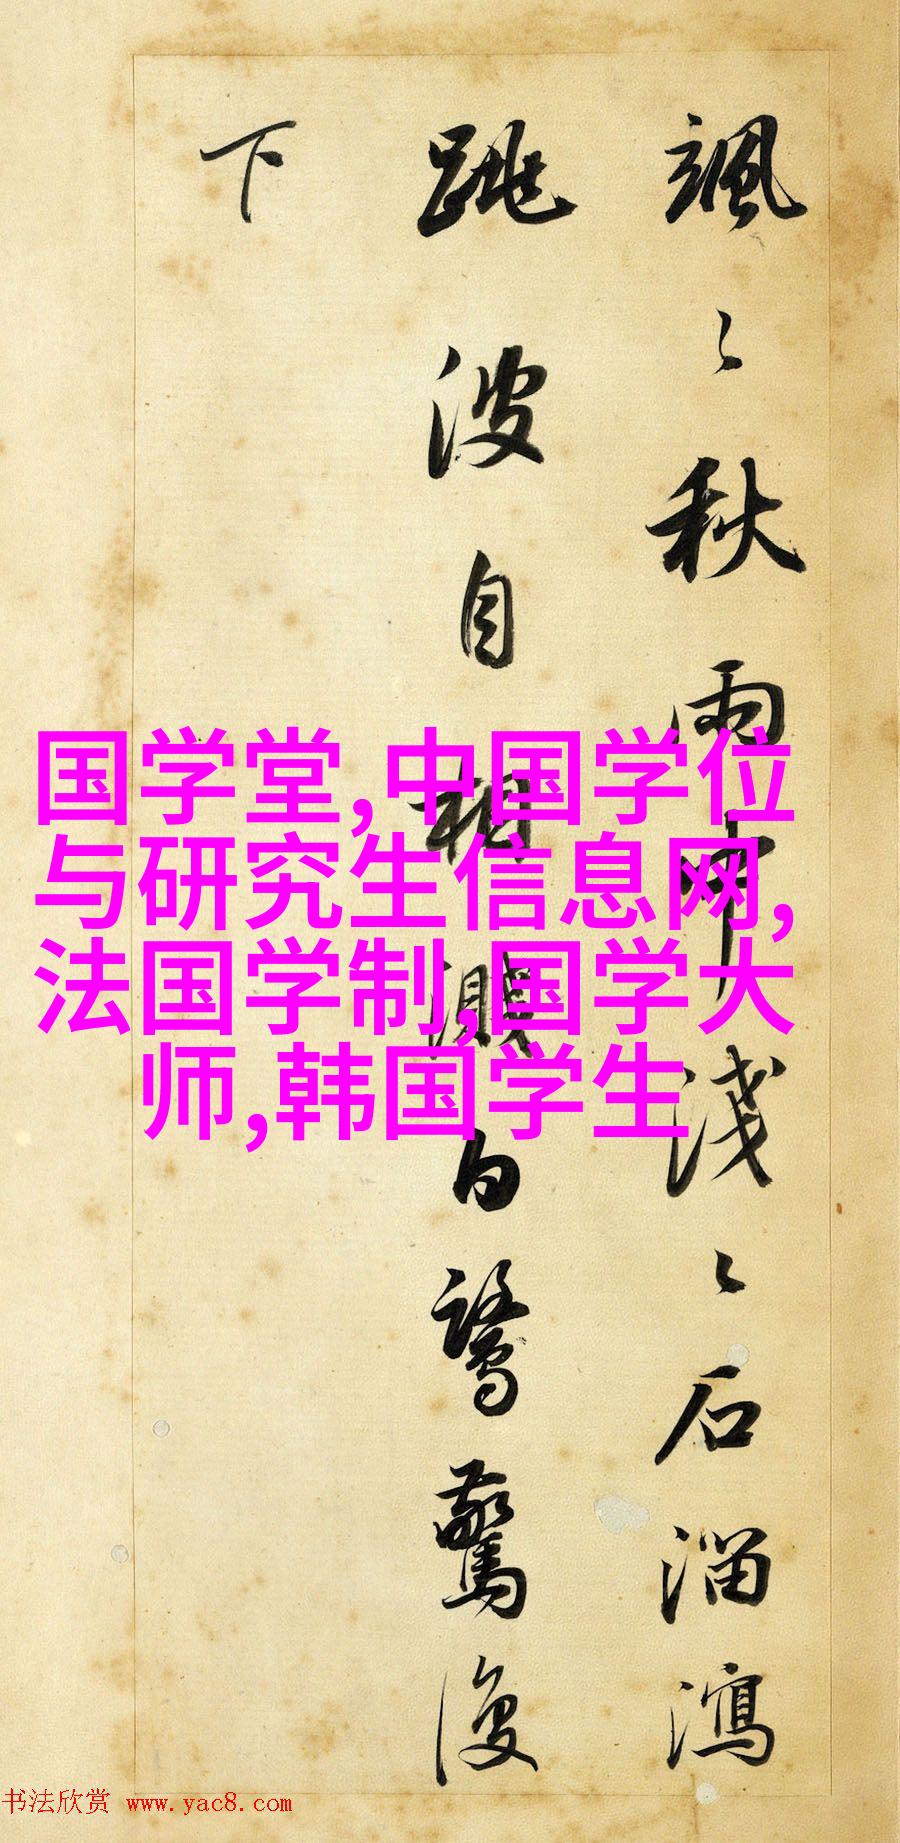 颯〻秋雨中淺〻石溜瀉
跳波自相濺白鷺驚復
下
国学堂,中国学位
与研究生信息网,
法国学制,国学大
师,韩国学生
书法欣赏 www.yac8.com